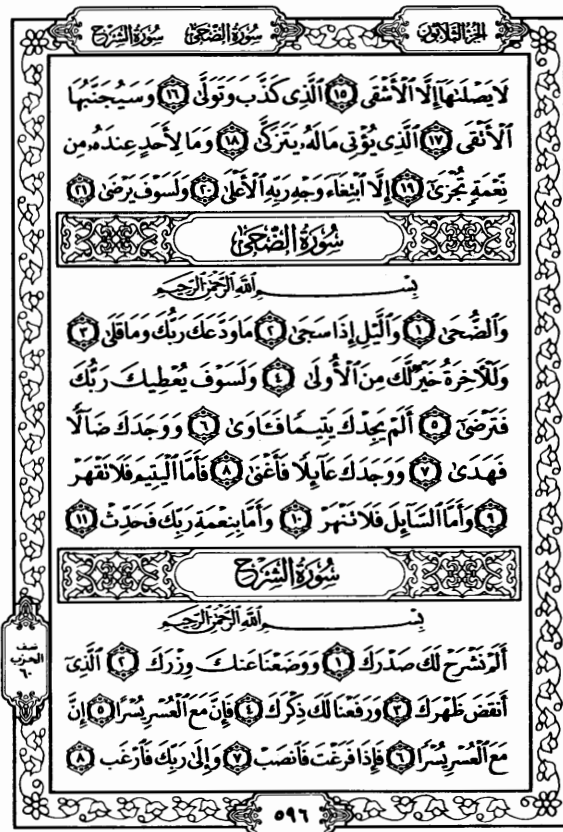 الجزء الثلاثون
سورة الضحى
سورة الشرح
لَا يَصْلَىٰهَآ إِلَّا ٱلْأَشْقَى ١٥ ٱلَّذِى كَذَّبَ وَتَوَلَّىٰ ١٦ وَسَيُجَنَّبُهَا
ٱلْأَتْقَى ١٧ ٱلَّذِى يُؤْتِى مَالَهُۥ يَتَزَكَّىٰ ١٨ وَمَا لِأَحَدٍ عِندَهُۥ مِن
نِّعْمَةٍ تُجْزَىٰٓ ١٩ إِلَّا ٱبْتِغَآءَ وَجْهِ رَبِّهِ ٱلْأَعْلَىٰ ٢٠ وَلَسَوْفَ يَرْضَىٰ ٢١
سُورَةُ الضُّحَىٰ
بِسْمِ ٱللَّهِ ٱلرَّحْمَٰنِ ٱلرَّحِيمِ
وَٱلضُّحَىٰ ١ وَٱلَّيْلِ إِذَا سَجَىٰ ٢ مَا وَدَّعَكَ رَبُّكَ وَمَا قَلَىٰ ٣
وَلَلْـَٔاخِرَةُ خَيْرٌ لَّكَ مِنَ ٱلْأُولَىٰ ٤ وَلَسَوْفَ يُعْطِيكَ رَبُّكَ
فَتَرْضَىٰٓ ٥ أَلَمْ يَجِدْكَ يَتِيمًا فَـَٔاوَىٰ ٦ وَوَجَدَكَ ضَآلًّا
فَهَدَىٰ ٧ وَوَجَدَكَ عَآئِلًا فَأَغْنَىٰ ٨ فَأَمَّا ٱلْيَتِيمَ فَلَا تَقْهَرْ
٩ وَأَمَّا ٱلسَّآئِلَ فَلَا تَنْهَرْ ١٠ وَأَمَّا بِنِعْمَةِ رَبِّكَ فَحَدِّثْ ١١
سُورَةُ الشَّرْحِ
بِسْمِ ٱللَّهِ ٱلرَّحْمَٰنِ ٱلرَّحِيمِ
أَلَمْ نَشْرَحْ لَكَ صَدْرَكَ ١ وَوَضَعْنَا عَنكَ وِزْرَكَ ٢ ٱلَّذِىٓ
أَنقَضَ ظَهْرَكَ ٣ وَرَفَعْنَا لَكَ ذِكْرَكَ ٤ فَإِنَّ مَعَ ٱلْعُسْرِ يُسْرًا ٥ إِنَّ
مَعَ ٱلْعُسْرِ يُسْرًا ٦ فَإِذَا فَرَغْتَ فَٱنصَبْ ٧ وَإِلَىٰ رَبِّكَ فَٱرْغَب ٨
نصف
الحزب
٦٠
٥٩٦